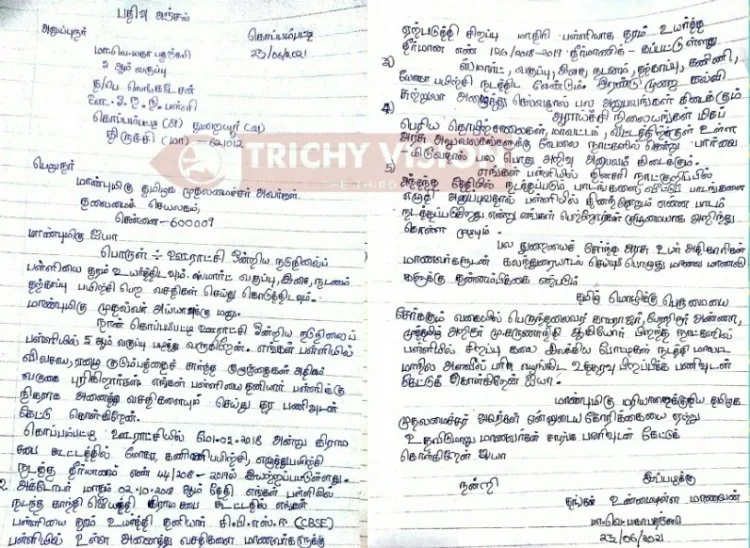 பதிவு அஞ்சல்
அனுப்புநர்
கொப்பம்பட்டி
23/06/2021
5 ஆம் வகுப்பு
த/பெ வெங்கடேசன்
ஊ.ஒ.ந.நி. பள்ளி
கொப்பம்பட்டி (அ) துறையூர் (வ)
திருச்சி (மா) 621012
TRICHY VISION
பெறுநர்
மாண்புமிகு தமிழக முதலமைச்சர் அவர்கள்
தலைமைச் செயலகம்,
சென்னை-600009
மாண்புமிகு ஐயா
பொருள் ÷ ஊராட்சி ஒன்றிய நடுநிலைப்
பள்ளியை தரம் உயர்த்திடவும். ஸ்மார்ட் வகுப்பு, இசை, நடனம்
தற்காப்பு பயிற்சி பெற வசதிகள் செய்து கொடுத்திடவும்.
மாண்புமிகு முதல்வர் அய்யாவுக்கு மனு.
நான் கொப்பம்பட்டி ஊராட்சி ஒன்றிய நடுநிலைப்
பள்ளியில் 5 ஆம் வகுப்பு படித்து வருகிறேன். எங்கள் பள்ளியில்
விவசாய, ஏழை குடும்பத்தைச் சார்ந்த குழந்தைகள் அதிகம்
வருகை புரிகிறார்கள். எங்கள் பள்ளியை தனியார் பள்ளிக்கு
நிகராக அனைத்து வசதிகளையும் செய்து தர பணிவுடன்
கேட்டு கொள்கிறேன்.
கொப்பம்பட்டி ஊராட்சியில் மே1-02-2018 அன்று கிராம
சபை கூட்டத்தில் யோகா, கணிணி பயிற்சி, எழுத்து பயிற்சி
நடத்த தீர்மானம் எண் 44/2018-2019ல் இயற்றப்பட்டுள்ளது.
2. அக்டோபர் மாதம் 02.10.2018 ஆம் தேதி எங்கள் பள்ளியில்
நடந்த காந்தி ஜெயந்தி கிராம சபை கூட்டத்தில் எங்கள்
பள்ளியை தரம் உயர்த்தி தனியார் சி.பி.எஸ்.சி (CBSE)
பள்ளியில் உள்ள அனைத்து வசதிகளை மாணவர்களுக்கு
ஏற்படுத்தி சிறப்பு மாதிரி பள்ளியாக தரம் உயர்த்த
தீர்மான எண் 126/2018-2019 தீர்மானிக்கப்பட்டு உள்ளது
3) ஸ்மார்ட், வகுப்பு, இசை, நடனம், தற்காப்பு, கணிணி,
யோகா பயிற்சி நடத்திட வேண்டும். இரண்டு முறை கல்வி
சுற்றுலா அழைத்து செல்வதால் பல அனுபவங்கள் கிடைக்கும்
4) ஆராய்ச்சி நிலையங்கள் மிகப்
பெரிய தொழிற்சாலைகள், மாவட்டம், வட்டத்திற்குள் உள்ள
அரசு அலுவலகங்களுக்கு வேலை நாட்களில் சென்று பார்வை
யிடுவதால் பல பொது அறிவு அனுபவம் கிடைக்கும்.
5) எங்கள் பள்ளியில் தினசரி நாட்குறிப்பில்
அந்தந்த தேதியில் நடத்தப்படும் பாடங்களை, வீட்டுப் பாடங்களை
எழுதி அனுப்புவதால் பள்ளியில் தினந்தோறும் என்ன பாடம்
நடத்தப்படுகிறது என்று எங்கள் பெற்றோர்கள் முழுமையாக அறிந்து
கொள்ள முடியும்.
பல துறையைச் சேர்ந்த அரசு உயர் அதிகாரிகள்
மாணவர்களுடன் கலந்துரையாடல் செய்யும் பொழுது மாணவ மாணவி
களுக்கு தன்னம்பிக்கை ஏற்படும்
தமிழ் மொழிக்கு பெருமையை
சேர்க்கும் வகையில் பெருந்தலைவர் காமராஜர், பேரறிஞர் அண்ணா,
முத்தமிழ் அறிஞர் மு.கருணாநிதி ஆகியோர் பிறந்த நாட்களில்
பள்ளியில் சிறப்பு கலை இலக்கிய போட்டிகள் நடத்தி மாவட்ட
மாநில அளவில் பரிசு வழங்கிட உத்தரவு பிறப்பிக்க பணிவுடன்
கேட்டுக் கொள்கிறேன் ஐயா.
மாண்புமிகு மரியாதைக்குரிய தமிழக
முதலமைச்சர் அவர்கள் என்னுடைய கோரிக்கையை ஏற்று
உதவிடுமாறு மாணவர்கள் சார்பாக பணிவுடன் கேட்டுக்
கொள்கிறேன் ஐயா
நன்றி
இப்படிக்கு
தங்கள் உண்மையுள்ள மாணவன்
23/06/2021